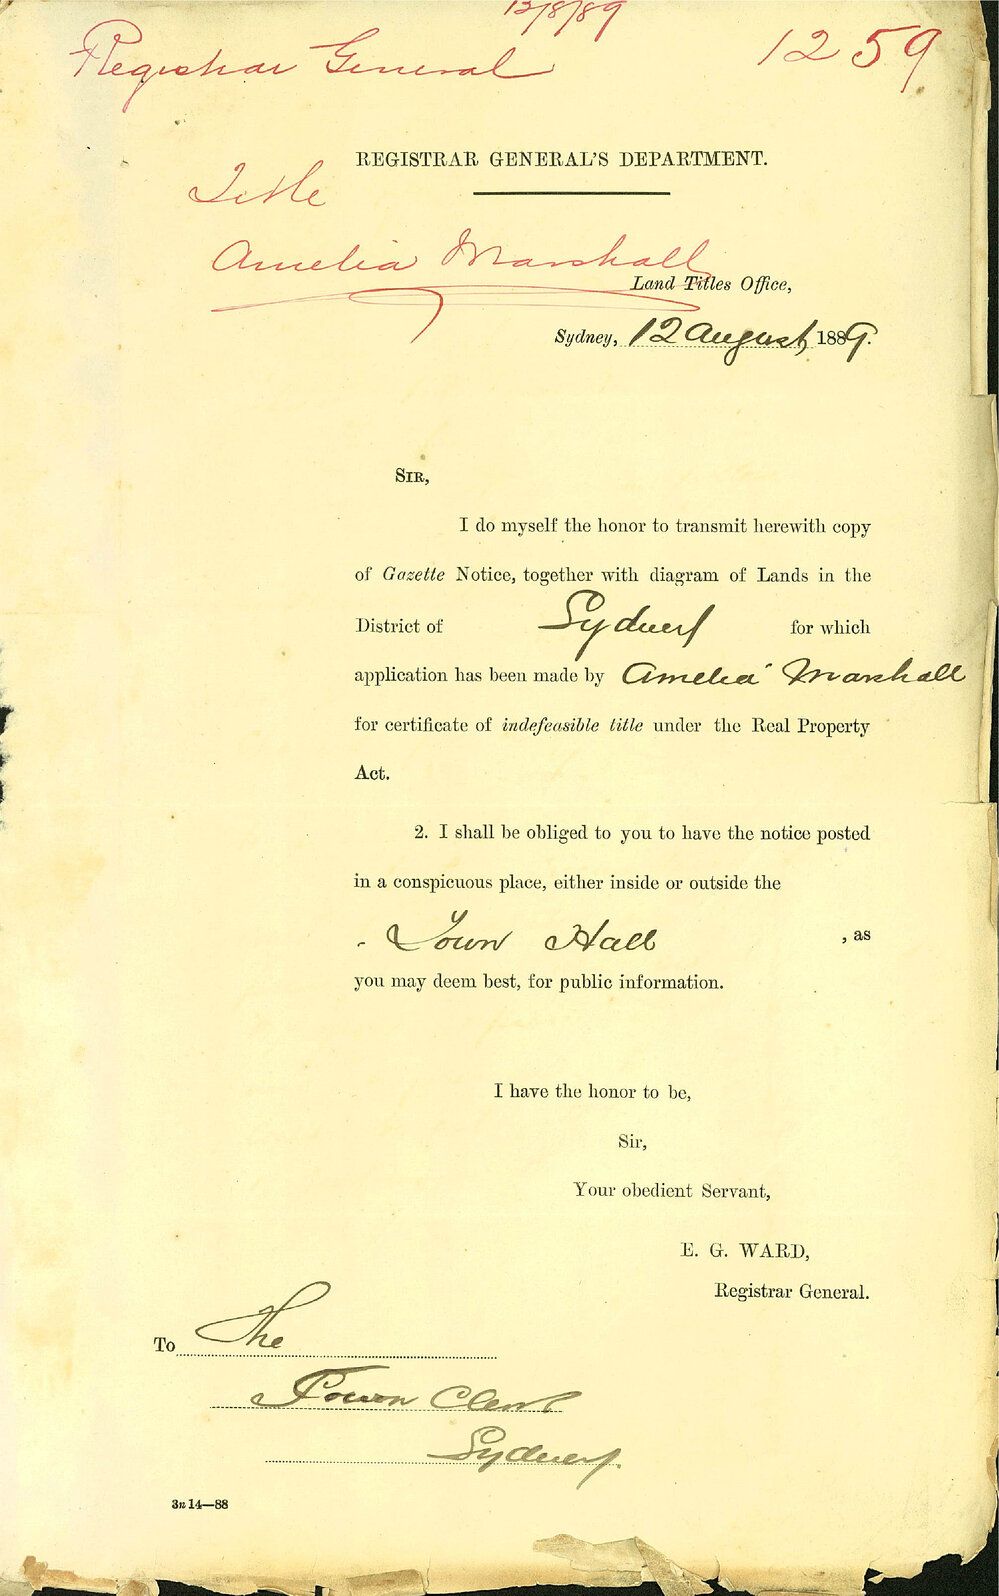 13/8/89
Registrar General 1259
REGISTRAR GENERAL'S DEPARTMENT.
Title
Amelia Marshall
Land Titles Office,
Sydney, 12 August 1889.
SIR,
I do myself the honor to transmit herewith copy
of Gazette Notice, together with diagram of Lands in the
District of Sydney for which
application has been made by Amelia Marshall
for certificate of indefeasible title under the Real Property
Act.
2. I shall be obliged to you to have the notice posted
in a conspicuous place, either inside or outside the
Town Hall , as
you may deem best, for public information.
I have the honor to be,
Sir,
Your obedient Servant,
E. G. WARD,
Registrar General.
To The
Town Clerk
Sydney.
3n 14—88